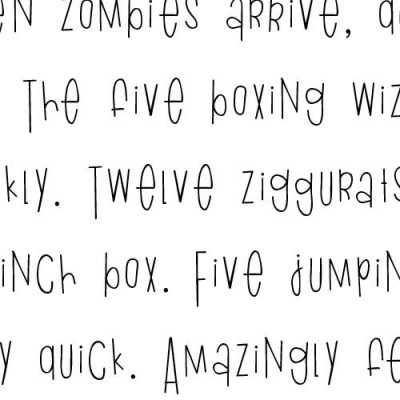 en zombies arrive, q
. The five boxing wiz
kly. Twelve ziggurats
inch box. Five jumpin
y quick. Amazingly fe